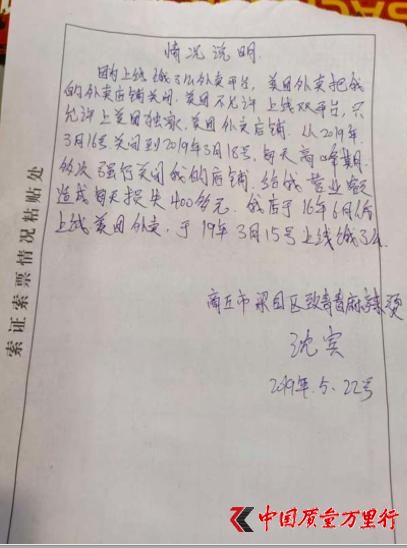 情况说明
因为上线饿了么外卖平台，美团外卖把我
的外卖店铺关闭.美团不允许上线双平台，只
允许上美团独家.美团外卖店铺.从2019年.
3月16号关闭到2019年3月18号，每天高峰期.
多次强行关闭我的店铺.给我营业额
造成每天损失400多元.我店于16年6月份
上线美团外卖，于19年3月15号上线饿了么.
商丘市梁园区致青春麻辣烫
沈宾
2019年.5.22号
索证索票情况帖贴处
中国质量万里行